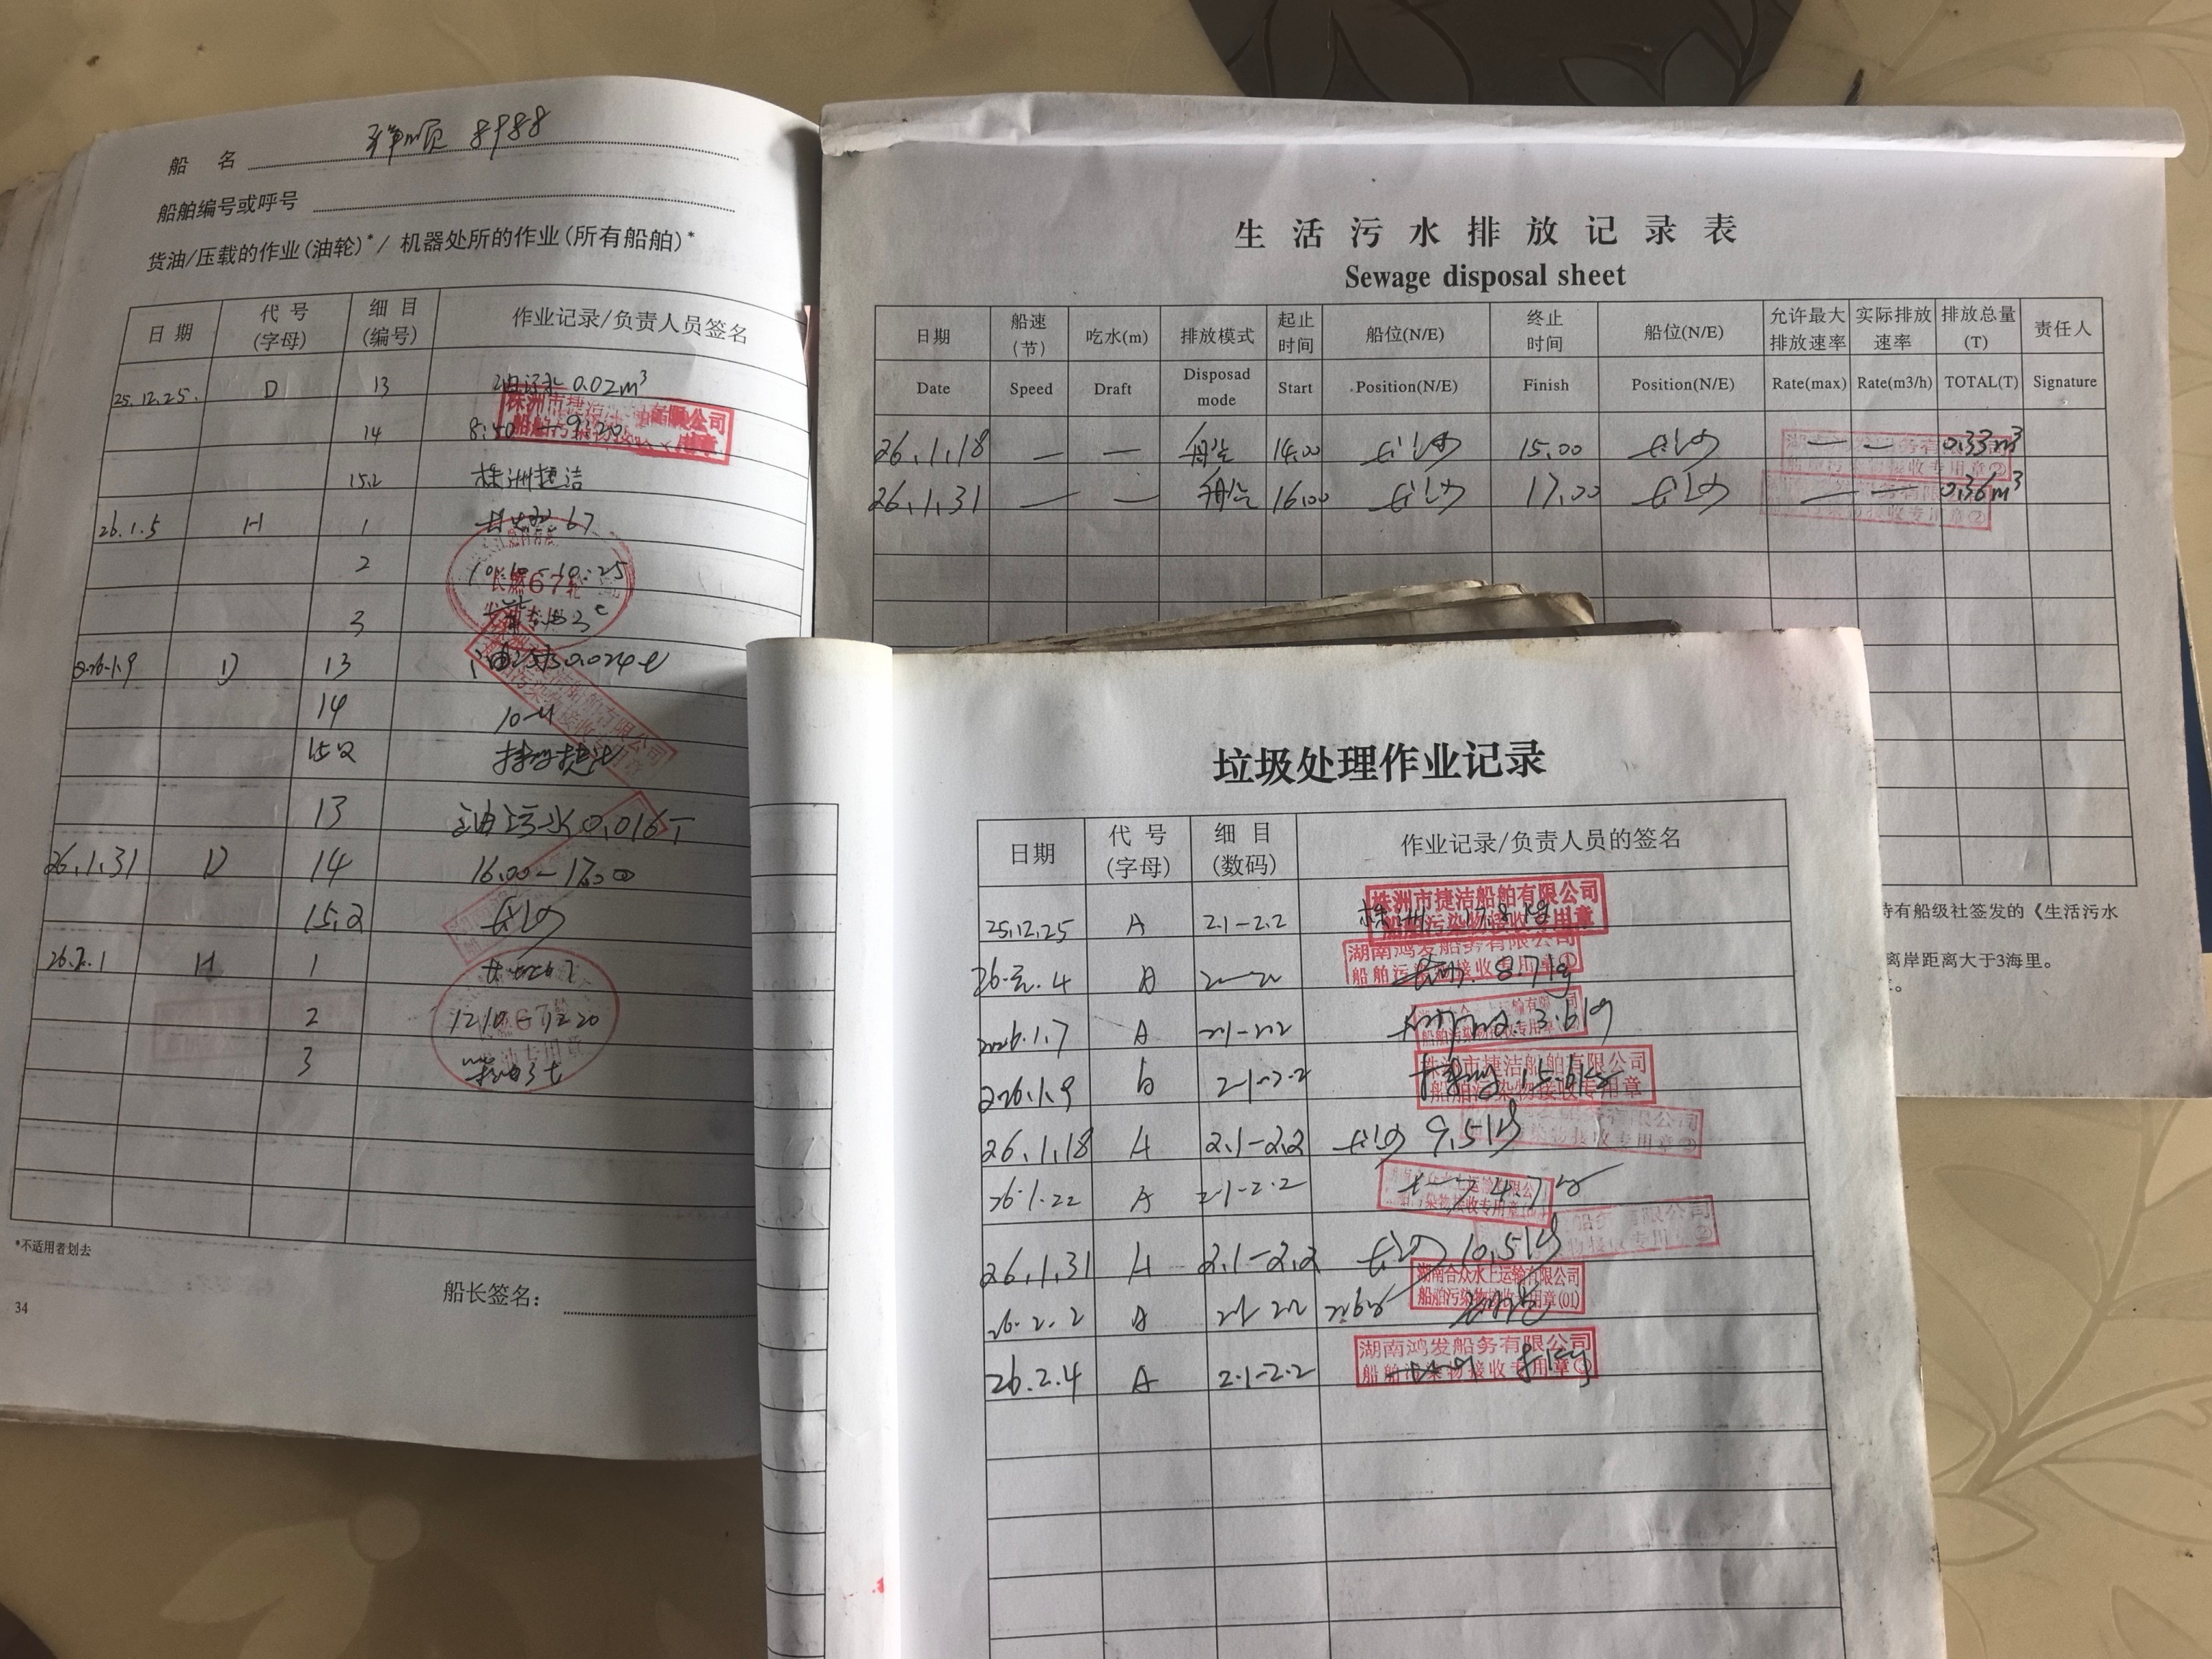 船 名 顺 8988
船舶编号或呼号
货油/压载的作业(油轮)*/ 机器处所的作业(所有船舶)*
日 期 代 号 (字母) 细 目 (编号) 作业记录/负责人员签名
25.12.25. D 13 油污水 0.02m³
株洲市捷洁船舶有限公司
船舶污染物接收专用章
14 8:50-9:20
15.2 株洲捷洁
26.1.5 H 1 67
2 10:10-10:25
长燃67轮
3
26.1.9 D 13 油污水0.024t
14 10-11
15.2 株洲捷洁
13 油污水0.016T
26.1.31 D 14 16.00-17.00
15.2 长沙
26.2.1 H 1
2 1210-1220
3 柴油3t
*不适用者划去
34
船长签名:
生活污水排放记录表
Sewage disposal sheet
日期 船速(节) 吃水(m) 排放模式 起止时间 船位(N/E) 终止时间 船位(N/E) 允许最大排放速率 实际排放速率 排放总量(T) 责任人
Date Speed Draft Disposad mode Start Position(N/E) Finish Position(N/E) Rate(max) Rate(m3/h) TOTAL(T) Signature
26.1.18 — — 船岸 14.00 长沙 15.00 长沙 — — 0.33m³
26.1.31 — — 船岸 16.00 长沙 17.00 长沙 — — 0.36m³
持有船级社签发的《生活污水
离岸距离大于3海里。
垃圾处理作业记录
日期 代 号 (字母) 细 目 (数码) 作业记录/负责人员的签名
25.12.25 A 2.1-2.2 株洲
株洲市捷洁船舶有限公司
船舶污染物接收专用章
湖南鸿发船务有限公司
船舶污染物接收专用章①
26.元.4 A 2-2 8.7kg
26.1.7 A 2.1-2.2 3.6kg
26.1.9 b 2-1-2.2 株洲 15.6kg
株洲市捷洁船舶有限公司
船舶污染物接收专用章
26.1.18 A 2.1-2.2 长沙 9.5kg
26.1.22 A 2-1-2-2 4.7
26.1.31 A 2.1-2.2 长沙 10.5kg
26.2.2 A
湖南合众水上运输有限公司
船舶污染物接收专用章(01)
26.2.4 A 2.1-2.2
湖南鸿发船务有限公司
船舶污染物接收专用章